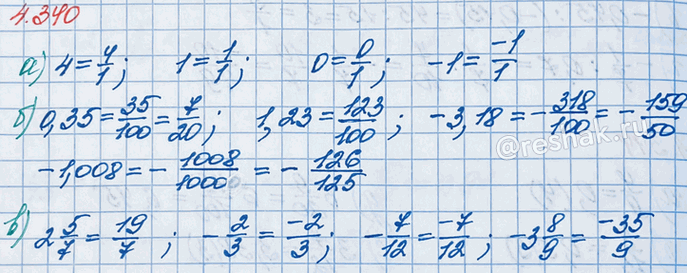 4.340
а) 4 = 4/1; 1 = 1/1; 0 = 0/1; -1 = -1/1
б) 0,35 = 35/100 = 7/20; 1,23 = 123/100; -3,18 = -318/100 = -159/50
-1,008 = -1008/1000 = -126/125
@reshak.ru
в) 2 5/7 = 19/7; -2/3 = -2/3; -7/12 = -7/12; -3 8/9 = -35/9